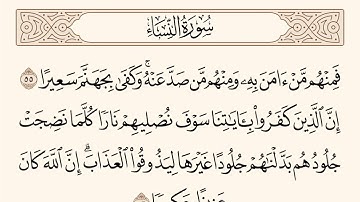 سُورَةُ النِّسَاءِ
فَمِنْهُم مَّنْ ءَامَنَ بِهِۦ وَمِنْهُم مَّن صَدَّ عَنْهُ ۚ وَكَفَىٰ بِجَهَنَّمَ سَعِيرًا ٥٥
إِنَّ ٱلَّذِينَ كَفَرُوا۟ بِـَٔايَـٰتِنَا سَوْفَ نُصْلِيهِمْ نَارًا كُلَّمَا نَضِجَتْ
جُلُودُهُم بَدَّلْنَـٰهُمْ جُلُودًا غَيْرَهَا لِيَذُوقُوا۟ ٱلْعَذَابَ ۗ إِنَّ ٱللَّهَ كَانَ